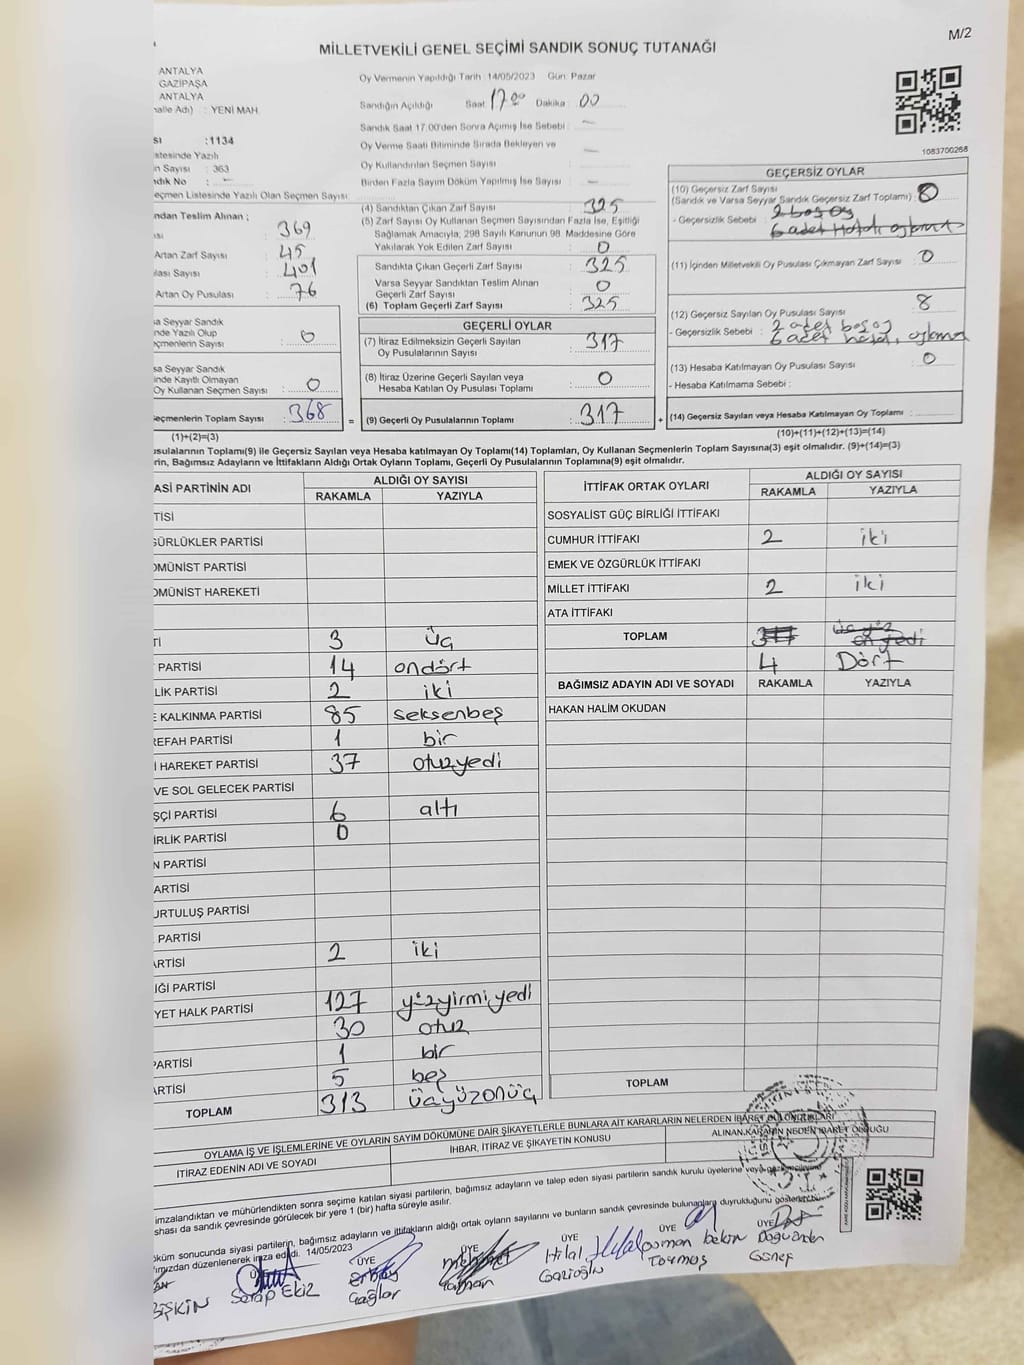 M/2
MİLLETVEKİLİ GENEL SEÇİMİ SANDIK SONUÇ TUTANAĞI
ANTALYA
GAZİPAŞA
ANTALYA
alle Adı) : YENİ MAH
Oy Vermenin Yapıldığı Tarih :14/05/2023 Gün: Pazar
Sandığın Açıldığı Saat 17.00 Dakika : 00
Sandık Saat 17.00'den Sonra Açımış İse Sebebi : –
Oy Verme Saati Bitiminde Sırada Bekleyen ve
Oy Kullandırılan Seçmen Sayısı –
Birden Fazla Sayım Döküm Yapılmış İse Sayısı : –
1083700268
sı :1134
istesinde Yazılı
n Sayısı : 363
ndık No : –
eçmen Listesinde Yazılı Olan Seçmen Sayısı
ndan Teslim Alınan ;
ısı : 369
Artan Zarf Sayısı : 45
ulası Sayısı : 401
Artan Oy Pusulası : 76
sa Seyyar Sandık
nde Yazılı Olup
çmenlerin Sayısı : 0
sa Seyyar Sandık
inde Kayıtlı Olmayan
Oy Kullanan Seçmen Sayısı : 0
eçmenlerin Toplam Sayısı : 368 =
(1)+(2)=(3)
(4) Sandıktan Çıkan Zarf Sayısı : 325
(5) Zarf Sayısı Oy Kullanan Seçmen Sayısından Fazla İse, Eşitliği
Sağlamak Amacıyla; 298 Sayılı Kanunun 98. Maddesine Göre
Yakılarak Yok Edilen Zarf Sayısı : 0
Sandıkta Çıkan Geçerli Zarf Sayısı : 325
Varsa Seyyar Sandıktan Teslim Alınan
Geçerli Zarf Sayısı : 0
(6) Toplam Geçerli Zarf Sayısı : 325
GEÇERLİ OYLAR
(7) İtiraz Edilmeksizin Geçerli Sayılan
Oy Pusulalarının Sayısı : 317
(8) İtiraz Üzerine Geçerli Sayılan veya
Hesaba Katılan Oy Pusulası Toplamı : 0
(9) Geçerli Oy Pusulalarının Toplamı : 317 +
GEÇERSİZ OYLAR
(10) Geçersiz Zarf Sayısı
(Sandık ve Varsa Seyyar Sandık Geçersiz Zarf Toplamı) : 0
- Geçersizlik Sebebi : 2 boş oy
6 adet Hatalı oylama
(11) İçinden Milletvekili Oy Pusulası Çıkmayan Zarf Sayısı : 0
(12) Geçersiz Sayılan Oy Pusulası Sayısı : 8
- Geçersizlik Sebebi : 2 adet boş oy
6 adet hatalı oylama
(13) Hesaba Katılmayan Oy Pusulası Sayısı : 0
- Hesaba Katılmama Sebebi :
(14) Geçersiz Sayılan veya Hesaba Katılmayan Oy Toplamı :
(10)+(11)+(12)+(13)=(14)
usulalarının Toplamı(9) ile Geçersiz Sayılan veya Hesaba Katılmayan Oy Toplamı(14) Toplamları, Oy Kullanan Seçmenlerin Toplam Sayısına(3) eşit olmalıdır. (9)+(14)=(3)
rin, Bağımsız Adayların ve İttifakların Aldığı Ortak Oyların Toplamı, Geçerli Oy Pusulalarının Toplamına(9) eşit olmalıdır.
ASİ PARTİNİN ADI ALDIĞI OY SAYISI
RAKAMLA YAZIYLA
TİSİ
GÜRLÜKLER PARTİSİ
OMÜNİST PARTİSİ
OMÜNİST HAREKETİ
Tİ 3 üç
PARTİSİ 14 ondört
LİK PARTİSİ 2 iki
E KALKINMA PARTİSİ 85 seksenbeş
REFAH PARTİSİ 1 bir
İ HAREKET PARTİSİ 37 otuzyedi
VE SOL GELECEK PARTİSİ
ŞÇİ PARTİSİ 6 altı
İRLİK PARTİSİ 0
N PARTİSİ
ARTİSİ
URTULUŞ PARTİSİ
PARTİSİ
ARTİSİ 2 iki
İĞİ PARTİSİ
YET HALK PARTİSİ 127 yüzyirmiyedi
30 otuz
PARTİSİ 1 bir
ARTİSİ 5 beş
TOPLAM 313 üçyüzonüç
İTTİFAK ORTAK OYLARI ALDIĞI OY SAYISI
RAKAMLA YAZIYLA
SOSYALİST GÜÇ BİRLİĞİ İTTİFAKI
CUMHUR İTTİFAKI 2 iki
EMEK VE ÖZGÜRLÜK İTTİFAKI
MİLLET İTTİFAKI 2 iki
ATA İTTİFAKI
TOPLAM 317 üçyüz on yedi
4 Dört
BAĞIMSIZ ADAYIN ADI VE SOYADI RAKAMLA YAZIYLA
HAKAN HALİM OKUDAN
TOPLAM
OYLAMA İŞ VE İŞLEMLERİNE VE OYLARIN SAYIM DÖKÜMÜNE DAİR ŞİKAYETLERLE BUNLARA AİT KARARLARIN NELERDEN İBARET BULUNDUKLARI
İTİRAZ EDENİN ADI VE SOYADI İHBAR, İTİRAZ VE ŞİKAYETİN KONUSU ALINAN KARARIN NEDEN İBARET OLDUĞU
imzalandıktan ve mühürlendikten sonra seçime katılan siyasi partilerin, bağımsız adayların ve talep eden siyasi partilerin sandık kurulu üyelerine veya
shası da sandık çevresinde görülecek bir yere 1 (bir) hafta süreyle asılır.
öküm sonucunda siyasi partilerin, bağımsız adayların ve ittifakların aldığı ortak oyların sayılarını ve bunların sandık çevresinde bulunanlara duyurulduğunu gösteren
ımızdan düzenlenerek imza edildi. 14/05/2023
ÜYE ÜYE ÜYE ÜYE ÜYE
BİŞKİN
Serap Ekiz
Çağlar
Hilal Gazioğlu
osman bekir